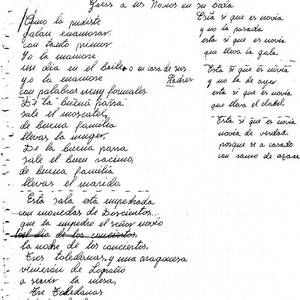 Jotas a los Novios en su boda
¿Cómo la pudiste
Galan enamorar
con tanto primor
Yo la enamore
un dia en el baile, o en casa de sus Padres
Yo la enamore
con palabras muy formales
De la buena parra
sale el moscatel
de buena familia
llevas la mujer.
De la buena parra
sale el buen racimo,
de buena familia
llevas el marido.
Esta sala esta empedrada
con monedas de Doscientos
que la empedro el señor novio
la noche de los conciertos.
Tres toledanas, o una aragonesa
vinieron de Logroño
a servir la mesa,
Tres Toledanas
Esta si que es novia
y no la pasada
esta si que es novia
que lleva la gala.
Esta si que es novia
y no la de ayer
esta si que es novia
que lleva el clabel
Esta si que es novia
novia de verdad,
porque se a casado
con ramo de azahar